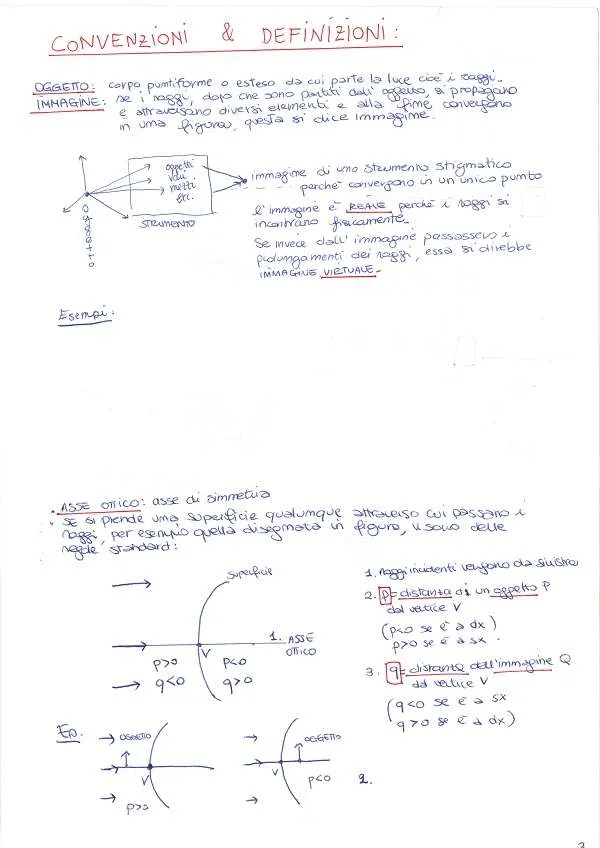 CONVENZIONI & DEFINIZIONI:
OGGETTO: corpo puntiforme o esteso da cui parte la luce cioè i raggi.
IMMAGINE: se i raggi, dopo che sono partiti dall'oggetto, si propagano
e attraversano diversi elementi e alla fine convergono
in una figura, questa si dice immagine.
oggetti
vari
mezzi
etc.
OGGETTO
STRUMENTO
immagine di uno strumento stigmatico
perché convergono in un unico punto
l'immagine è REALE perché i raggi si
incontrano fisicamente.
Se invece dall'immagine passassero i
prolungamenti dei raggi, essa si direbbe
IMMAGINE VIRTUALE.
Esempi:
• ASSE OTTICO: asse di simmetria
• se si prende una superficie qualunque attraverso cui passano i
raggi, per esempio quella disegnata in figura, si sono delle
regole standard:
superficie
1. ASSE
OTTICO
V
p>0 p<0
q<0 q>0
1. raggi incidenti vengono da sinistra
2. p = distanza di un oggetto P
dal vertice V
(p<0 se è a dx)
p>0 se è a sx.
3. q = distanza dell'immagine Q
dal vertice V
(q<0 se è a sx
q>0 se è a dx)
Es.
OGGETTO
V
p>0
OGGETTO
V
p<0
2.
3